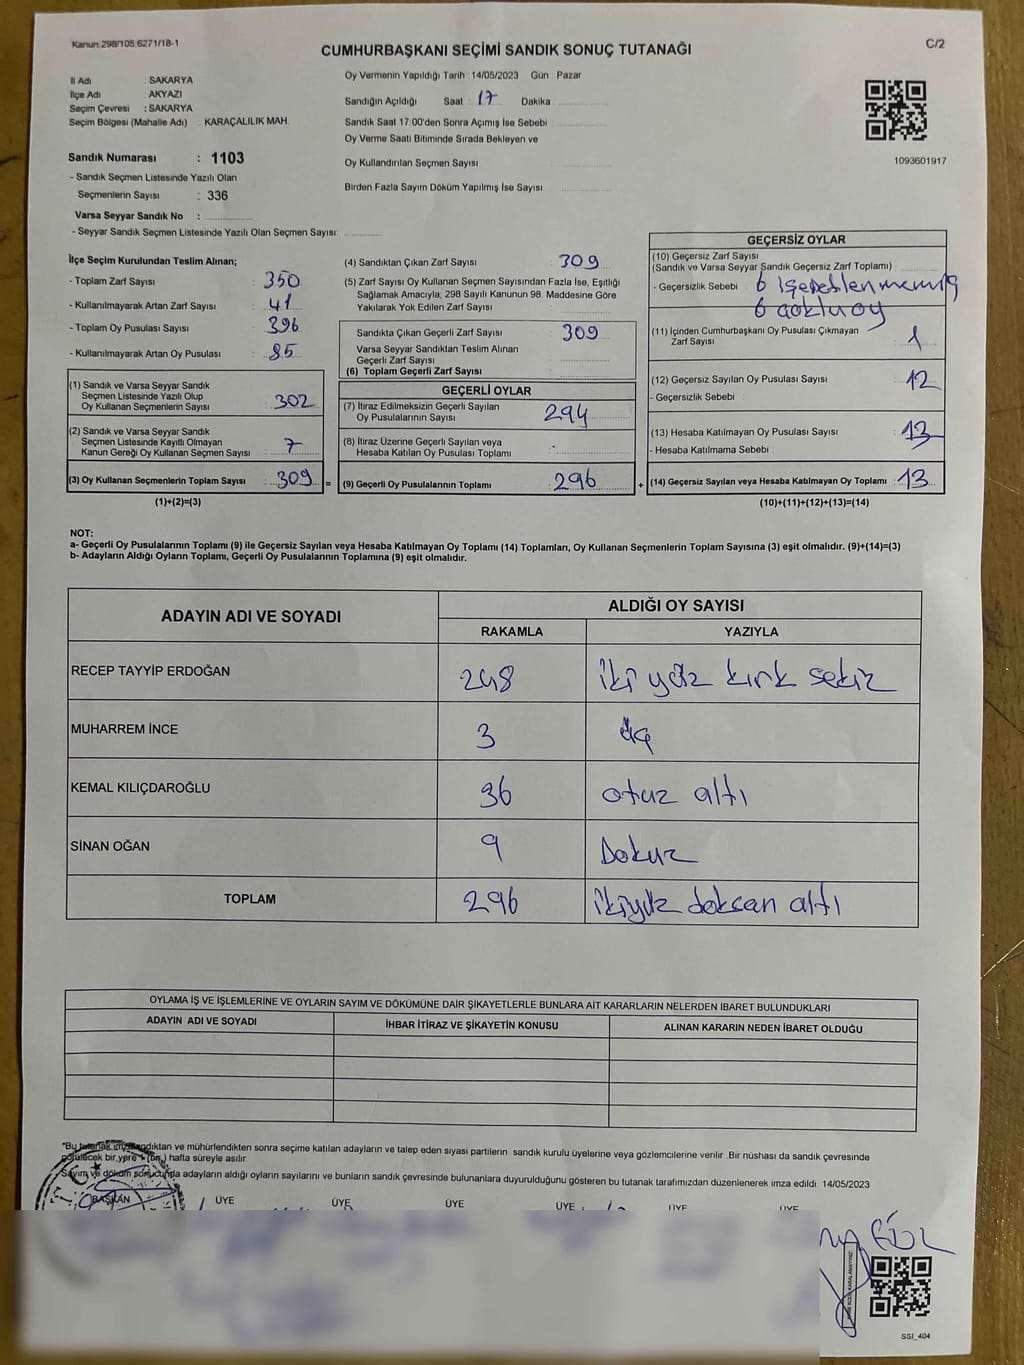 Kanun.298/105,6271/18-1
C/2
CUMHURBAŞKANI SEÇİMİ SANDIK SONUÇ TUTANAĞI
İl Adı : SAKARYA
İlçe Adı : AKYAZI
Seçim Çevresi : SAKARYA
Seçim Bölgesi (Mahalle Adı) : KARAÇALILIK MAH.
Sandık Numarası : 1103
- Sandık Seçmen Listesinde Yazılı Olan
Seçmenlerin Sayısı : 336
Varsa Seyyar Sandık No :
- Seyyar Sandık Seçmen Listesinde Yazılı Olan Seçmen Sayısı:
Oy Vermenin Yapıldığı Tarih : 14/05/2023 Gün : Pazar
Sandığın Açıldığı Saat : 17 Dakika :
Sandık Saat 17:00'den Sonra Açımış İse Sebebi :
Oy Verme Saati Bitiminde Sırada Bekleyen ve
Oy Kullandırılan Seçmen Sayısı :
Birden Fazla Sayım Döküm Yapılmış İse Sayısı :
1093601917
İlçe Seçim Kurulundan Teslim Alınan;
- Toplam Zarf Sayısı : 350
- Kullanılmayarak Artan Zarf Sayısı : 41
- Toplam Oy Pusulası Sayısı : 396
- Kullanılmayarak Artan Oy Pusulası : 85
(1) Sandık ve Varsa Seyyar Sandık
Seçmen Listesinde Yazılı Olup
Oy Kullanan Seçmenlerin Sayısı : 302
(2) Sandık ve Varsa Seyyar Sandık
Seçmen Listesinde Kayıtlı Olmayan
Kanun Gereği Oy Kullanan Seçmen Sayısı : 7
(3) Oy Kullanan Seçmenlerin Toplam Sayısı : 309 =
(1)+(2)=(3)
(4) Sandıktan Çıkan Zarf Sayısı : 309
(5) Zarf Sayısı Oy Kullanan Seçmen Sayısından Fazla İse, Eşitliği
Sağlamak Amacıyla; 298 Sayılı Kanunun 98. Maddesine Göre
Yakılarak Yok Edilen Zarf Sayısı :
Sandıkta Çıkan Geçerli Zarf Sayısı : 309
Varsa Seyyar Sandıktan Teslim Alınan
Geçerli Zarf Sayısı :
(6) Toplam Geçerli Zarf Sayısı :
GEÇERLİ OYLAR
(7) İtiraz Edilmeksizin Geçerli Sayılan
Oy Pusulalarının Sayısı : 294
(8) İtiraz Üzerine Geçerli Sayılan veya
Hesaba Katılan Oy Pusulası Toplamı : -
(9) Geçerli Oy Pusulalarının Toplamı : 296 +
GEÇERSİZ OYLAR
(10) Geçersiz Zarf Sayısı
(Sandık ve Varsa Seyyar Sandık Geçersiz Zarf Toplamı) :
- Geçersizlik Sebebi : 6 işeretlenmemiş
6 çoklu oy
(11) İçinden Cumhurbaşkanı Oy Pusulası Çıkmayan
Zarf Sayısı : 1
(12) Geçersiz Sayılan Oy Pusulası Sayısı : 12
- Geçersizlik Sebebi :
(13) Hesaba Katılmayan Oy Pusulası Sayısı : 13
- Hesaba Katılmama Sebebi :
(14) Geçersiz Sayılan veya Hesaba Katılmayan Oy Toplamı : 13
(10)+(11)+(12)+(13)=(14)
NOT:
a- Geçerli Oy Pusulalarının Toplamı (9) ile Geçersiz Sayılan veya Hesaba Katılmayan Oy Toplamı (14) Toplamları, Oy Kullanan Seçmenlerin Toplam Sayısına (3) eşit olmalıdır. (9)+(14)=(3)
b- Adayların Aldığı Oyların Toplamı, Geçerli Oy Pusulalarının Toplamına (9) eşit olmalıdır.
ADAYIN ADI VE SOYADI
ALDIĞI OY SAYISI
RAKAMLA YAZIYLA
RECEP TAYYİP ERDOĞAN 248 iki yüz kırk sekiz
MUHARREM İNCE 3 üç
KEMAL KILIÇDAROĞLU 36 otuz altı
SİNAN OĞAN 9 Dokuz
TOPLAM 296 ikiyüz doksan altı
OYLAMA İŞ VE İŞLEMLERİNE VE OYLARIN SAYIM VE DÖKÜMÜNE DAİR ŞİKAYETLERLE BUNLARA AİT KARARLARIN NELERDEN İBARET BULUNDUKLARI
ADAYIN ADI VE SOYADI İHBAR İTİRAZ VE ŞİKAYETİN KONUSU ALINAN KARARIN NEDEN İBARET OLDUĞU
"Bu tutanak imzalandıktan ve mühürlendikten sonra seçime katılan adayların ve talep eden siyasi partilerin sandık kurulu üyelerine veya gözlemcilerine verilir. Bir nüshası da sandık çevresinde
görülecek bir yere hafta süreyle asılır.
Sayım ve döküm sonucunda adayların aldığı oyların sayılarını ve bunların sandık çevresinde bulunanlara duyurulduğunu gösteren bu tutanak tarafımızdan düzenlenerek imza edildi. 14/05/2023
BAŞKAN ÜYE ÜYE ÜYE ÜYE ÜYE ÜYE
SSI_404